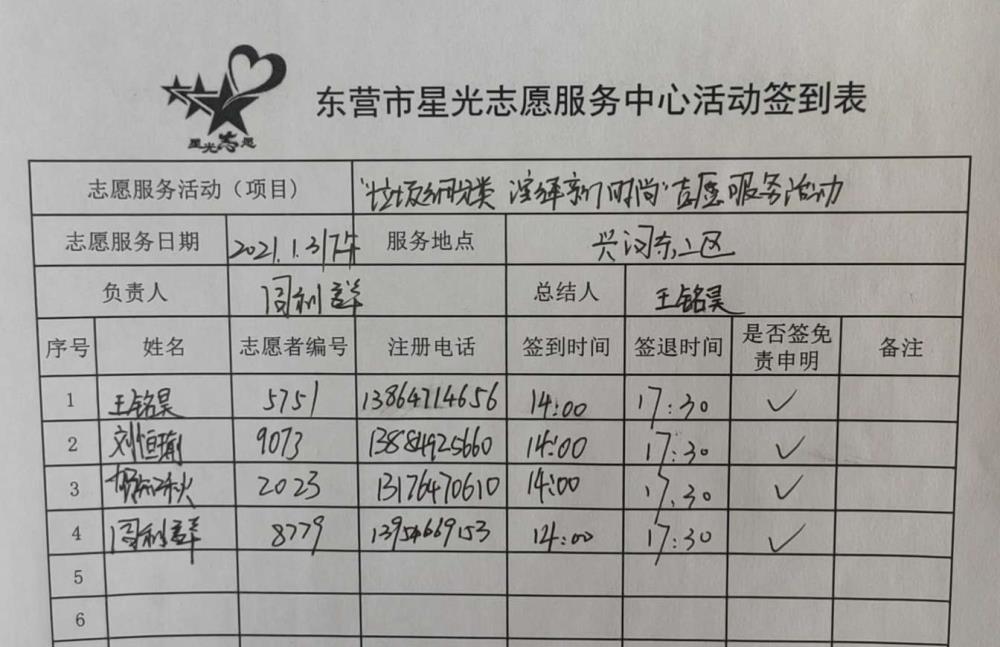 星光志愿
东营市星光志愿服务中心活动签到表
志愿服务活动（项目） “垃圾细分类 演绎新时尚”志愿服务活动
志愿服务日期 2021.1.31下午 服务地点 兴河东二区
负责人 周利群 总结人 王铭昊
序号 姓名 志愿者编号 注册电话 签到时间 签退时间 是否签免责申明 备注
1 王铭昊 5751 13864714656 14:00 17:30 ✓
2 刘恒瑜 9073 13884925660 14:00 17:30 ✓
3 2023 13176470610 14:00 17:30 ✓
4 周利群 8779 13954669153 14:00 17:30 ✓
5
6